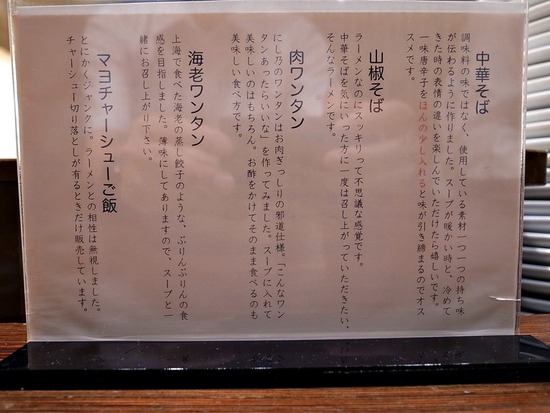 中華そば
調味料の味ではなく、使用している素材一つ一つの持ち味
が伝わるように作りました。スープが暖かい時と、冷めて
きた時の表情の違いを楽しんでいただけたら嬉しいです。
一味唐辛子をほんの少し入れると味が引き締まるのでオス
スメです。
山椒そば
ラーメンなのにスッキリって不思議な感覚です。
中華そばを気にいった方に一度は召し上がっていただきたい、
そんなラーメンです。
肉ワンタン
にし乃のワンタンはお肉ぎっしりの邪道仕様。「こんなワン
タンあったらいいな」を作ってみました。スープに入れて
美味しいのはもちろん、お酢をかけてそのまま食べるのも
美味しい食べ方です。
海老ワンタン
上海で食べた海老の蒸し餃子のような、ぷりんぷりんの食
感を目指しました。薄味にしてありますので、スープと一
緒にお召し上がり下さい。
マヨチャーシューご飯
とにかくジャンクに。ラーメンとの相性は無視しました。
チャーシュー切り落としが有るときだけ販売しています。